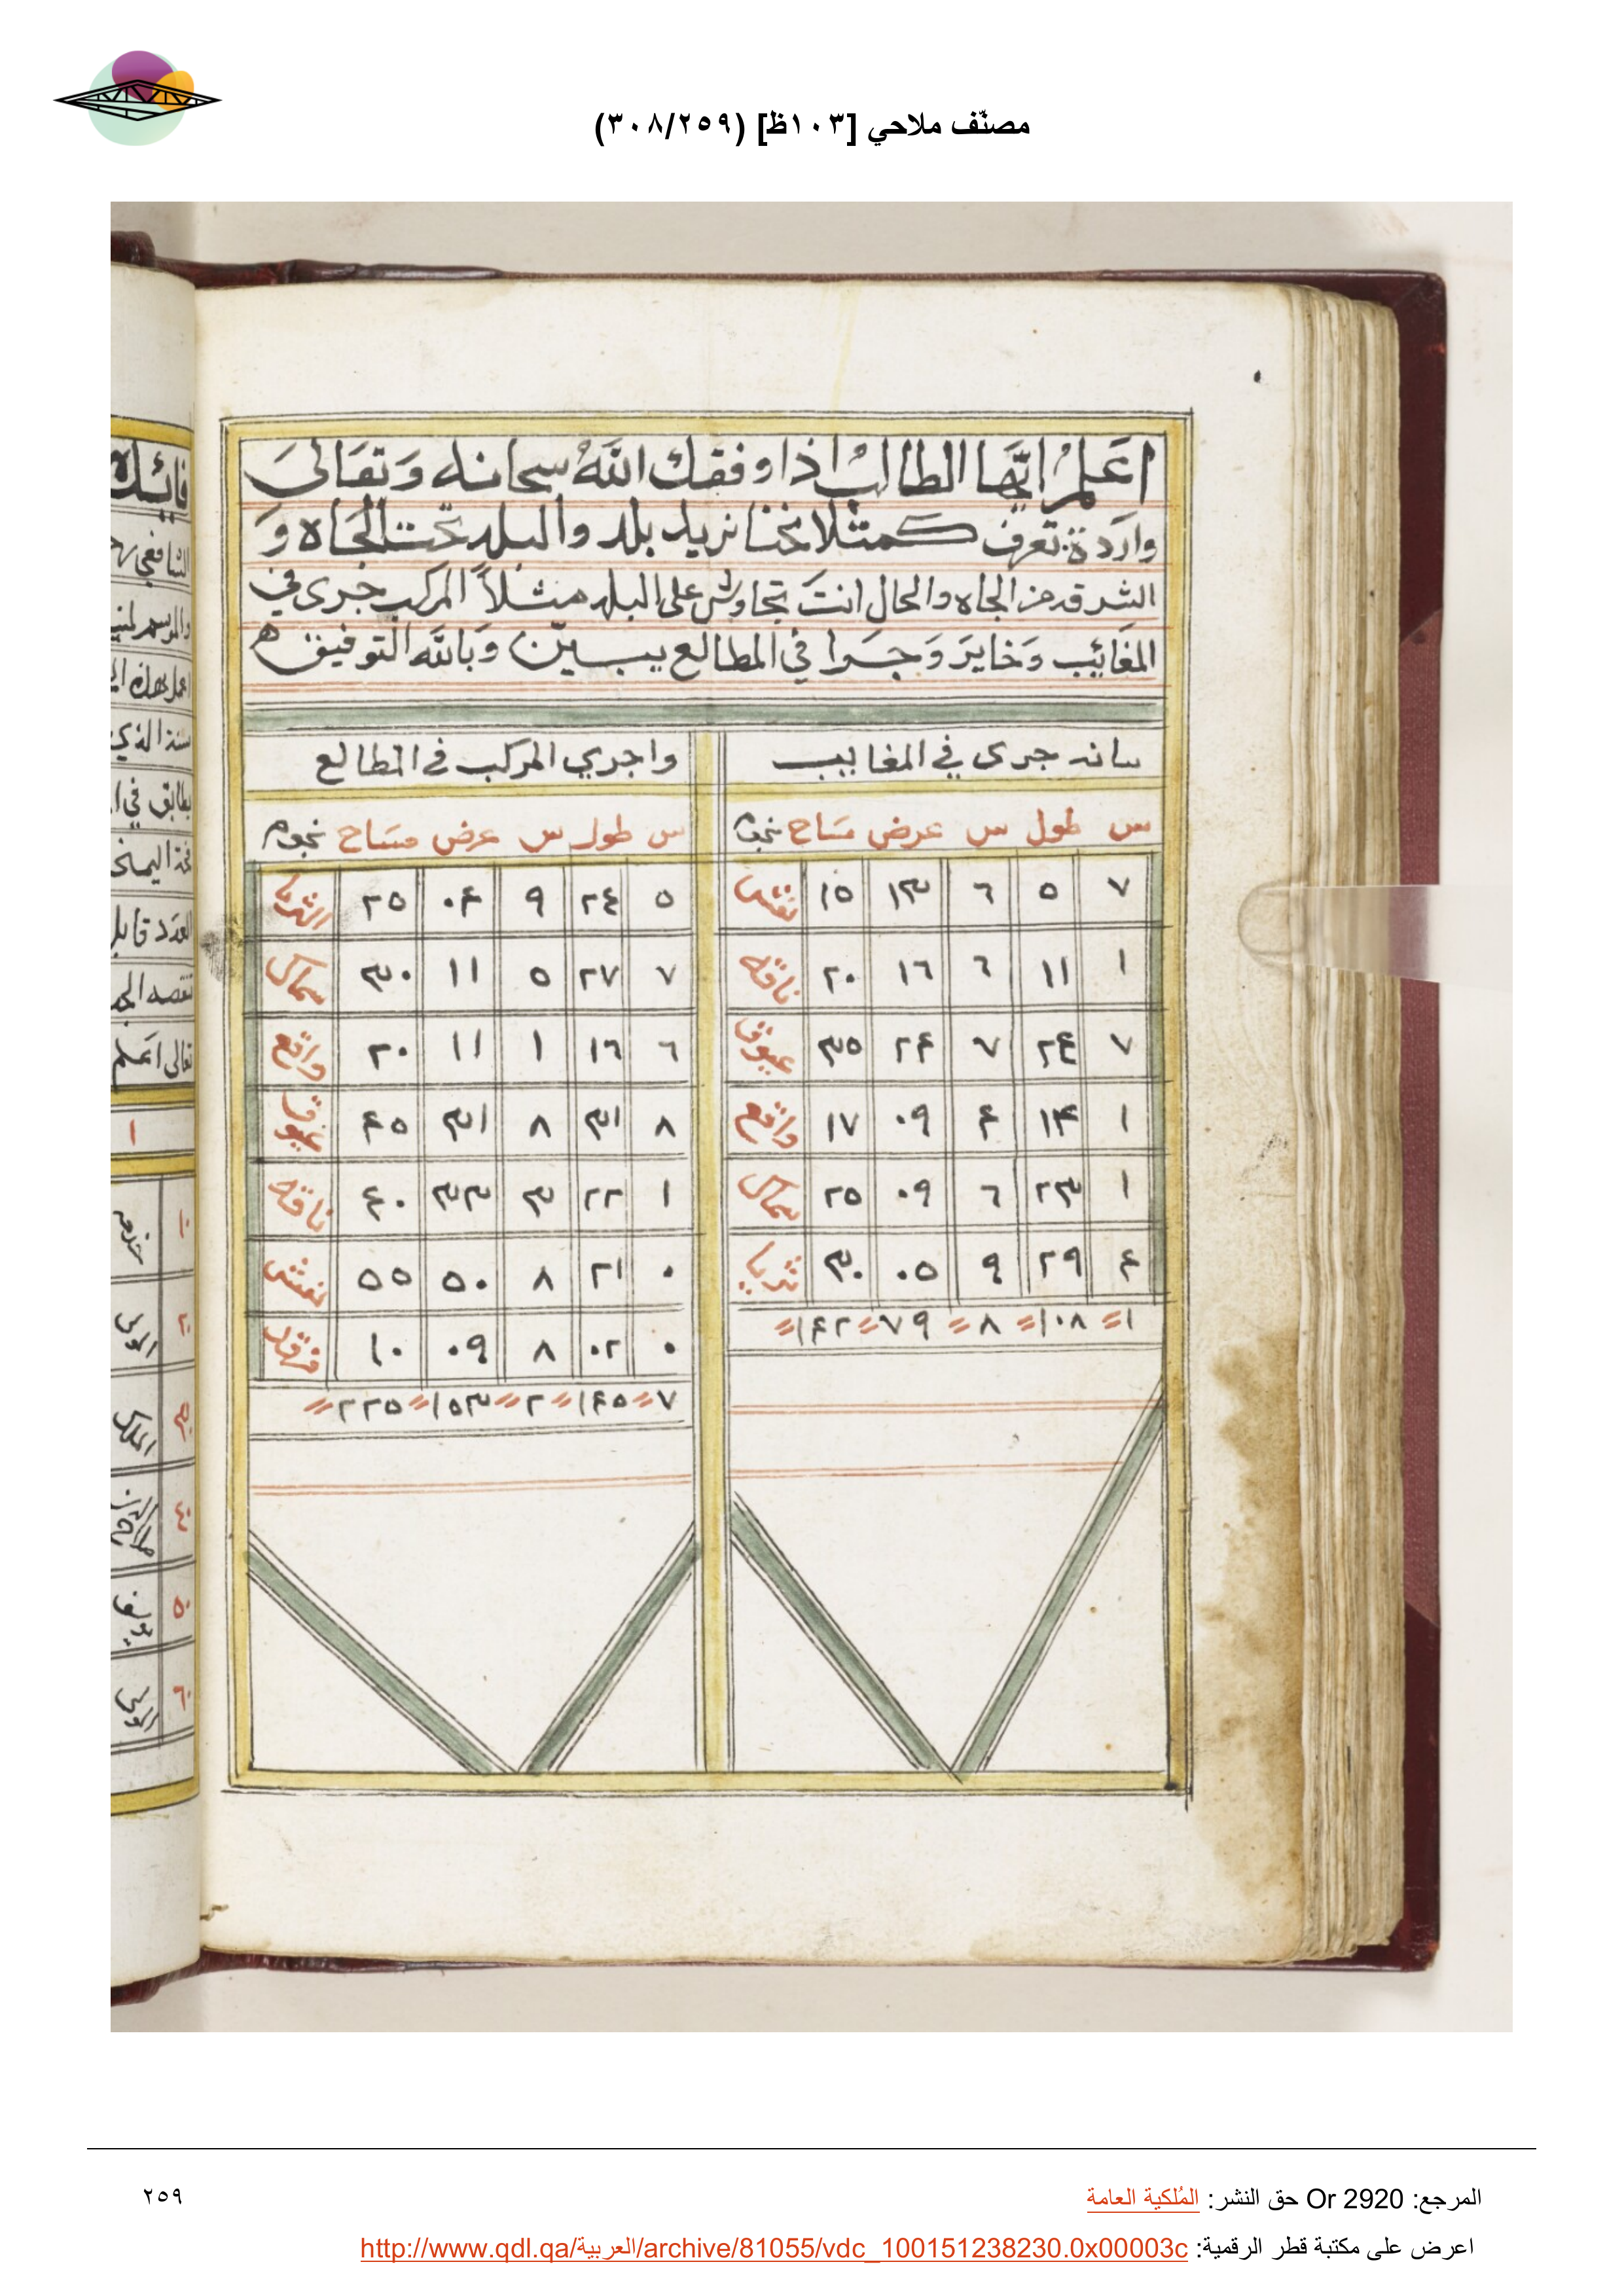 مصنّف ملاحي [١٠٣ظ] (٣٠٨/٢٥٩)
اعَلمْ ايّهَا الطالبْ اذا وفقك اللهُ سبحانه وَتعَالىَ
واردة تعرف كمثلا نحنا نريد بلد والبلد تحت الجَاه وَ
الشرقد من الجاه والحال انتَ تجاوش على البلد مثلاً المركب جرى في
المغَائِب وَخايرَ وَجرَا في المطالع يبين وَبالله التوفيق ه
سانه جرى في المغايب
س طول س عرض مسَاح نجوم
٧ ٥ ٦ ١٣ ١٥ نعش
١ ١١ ٦ ١٦ ٢٠ ناقه
٧ ٢٤ ٧ ٢۴ ٣٥ عيوق
١ ١۴ ۴ ٠٩ ١٧ واقع
١ ٢٣ ٦ ٠٩ ٢٥ سماك
۴ ٢٩ ٩ ٠٥ ٣٠ ثريا
١ ١٠٨ ٨ ٧٩ ١۴٢
واجري المركب في المطالع
س طول س عرض مسَاح نجوم
٥ ٢٤ ٩ ٠۴ ٢٥ الثريا
٧ ٢٧ ٥ ١١ ٣٠ سماك
٦ ١٦ ١ ١١ ٢٠ واقع
٨ ٣١ ٨ ٣١ ۴٥ عيوق
١ ٢٢ ٣ ٣٣ ۴٠ ناقه
٠ ٢١ ٨ ٥٠ ٥٥ نعش
٠ ٠٢ ٨ ٠٩ ١٠ فرقد
٧ ١۴٥ ٢ ١٥٣ ٢٢٥
فائده
الشافعي
سنة الذي
يطابق في
العَدَد قابل
تعالى اعَلم
١
١٠
٢٠
٣٠
٤٠
٥٠
٦٠
المرجع: Or 2920 حق النشر: المُلكية العامة
٢٥٩
اعرض على مكتبة قطر الرقمية: http://www.qdl.qa/العربية/archive/81055/vdc_100151238230.0x00003c